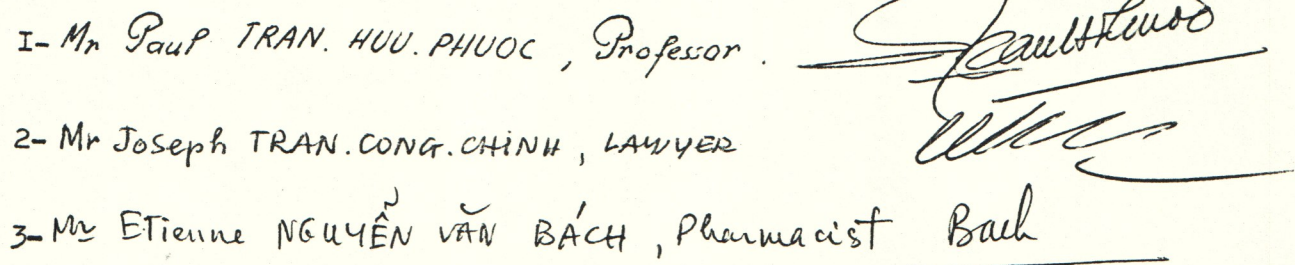 1- Mr Paul TRAN. HUU. PHUOC, Professor.
2- Mr Joseph TRAN. CONG. CHINH, LAWYER
3- Mr ETienne NGUYỄN VĂN BÁCH, Pharmacist Bach